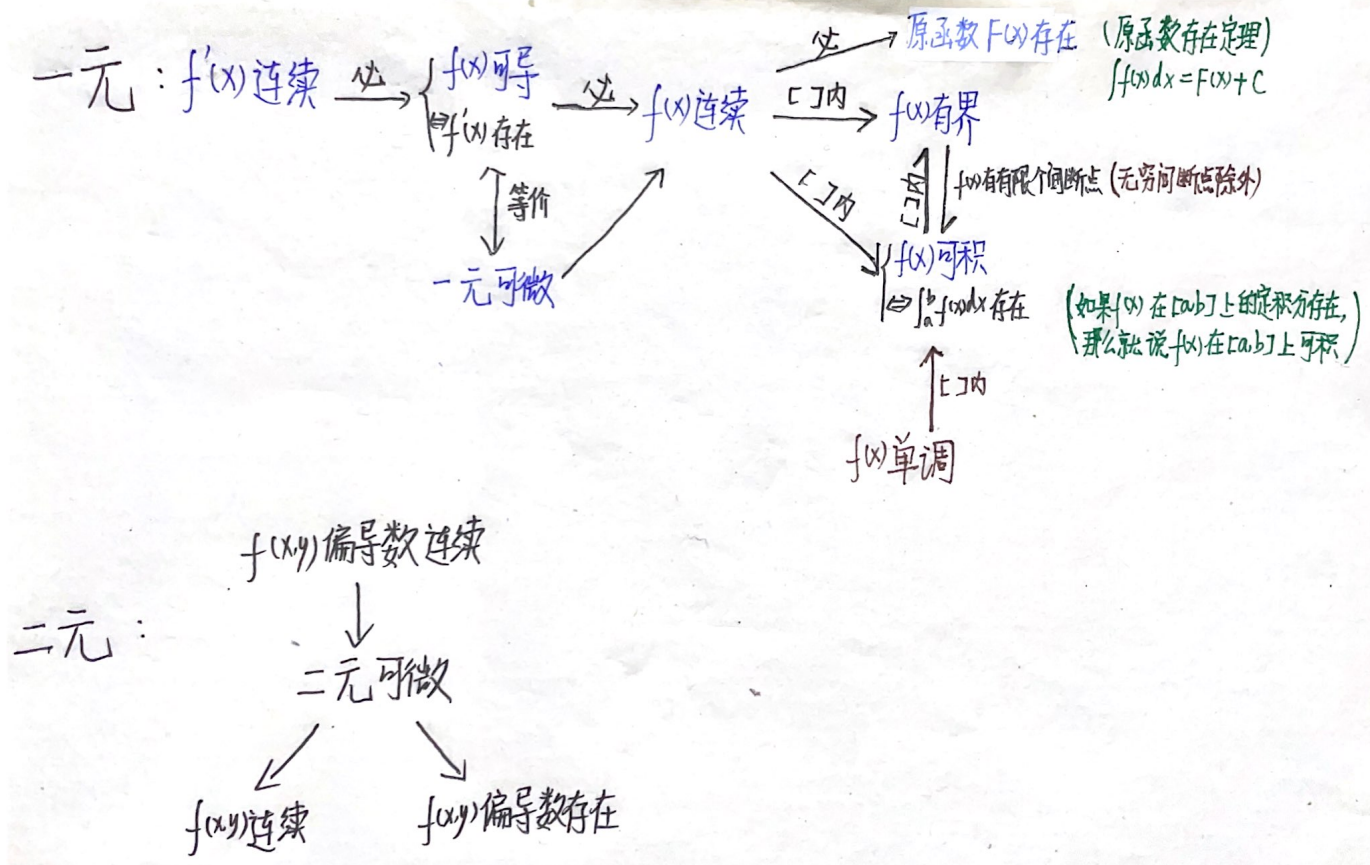 一元：
f'(x)连续
必
f(x)可导
⇔f'(x)存在
必
f(x)连续
必
原函数F(x)存在
(原函数存在定理)
∫f(x)dx=F(x)+C
[ ]内
f(x)有界
等价
一元可微
[ ]内
[ ]内
f(x)有有限个间断点(无穷间断点除外)
f(x)可积
⇔∫ₐᵇf(x)dx存在
(如果f(x)在[a,b]上的定积分存在,
那么就说f(x)在[a,b]上可积)
[ ]内
f(x)单调
二元：
f(x,y)偏导数连续
二元可微
f(x,y)连续
f(x,y)偏导数存在